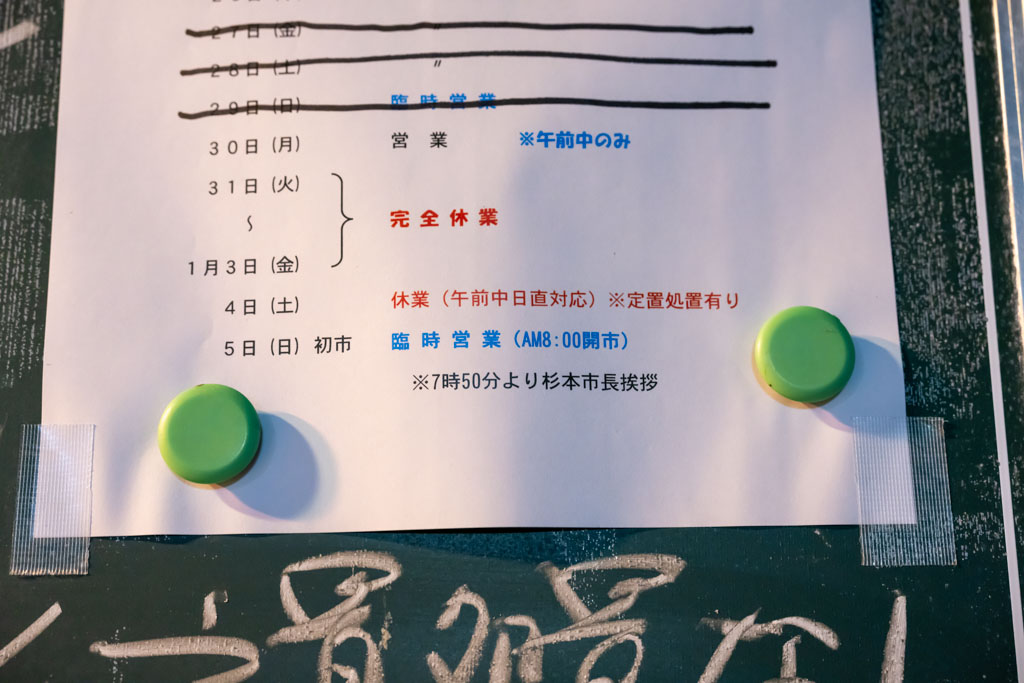 27日(金)
28日(土) 〃
29日(日) 臨時営業
30日(月) 営業 ※午前中のみ
31日(火)
～ 完全休業
1月3日(金)
4日(土) 休業(午前中日直対応)※定置処置有り
5日(日)初市 臨時営業(AM8:00開市)
※7時50分より杉本市長挨拶
定置処置な